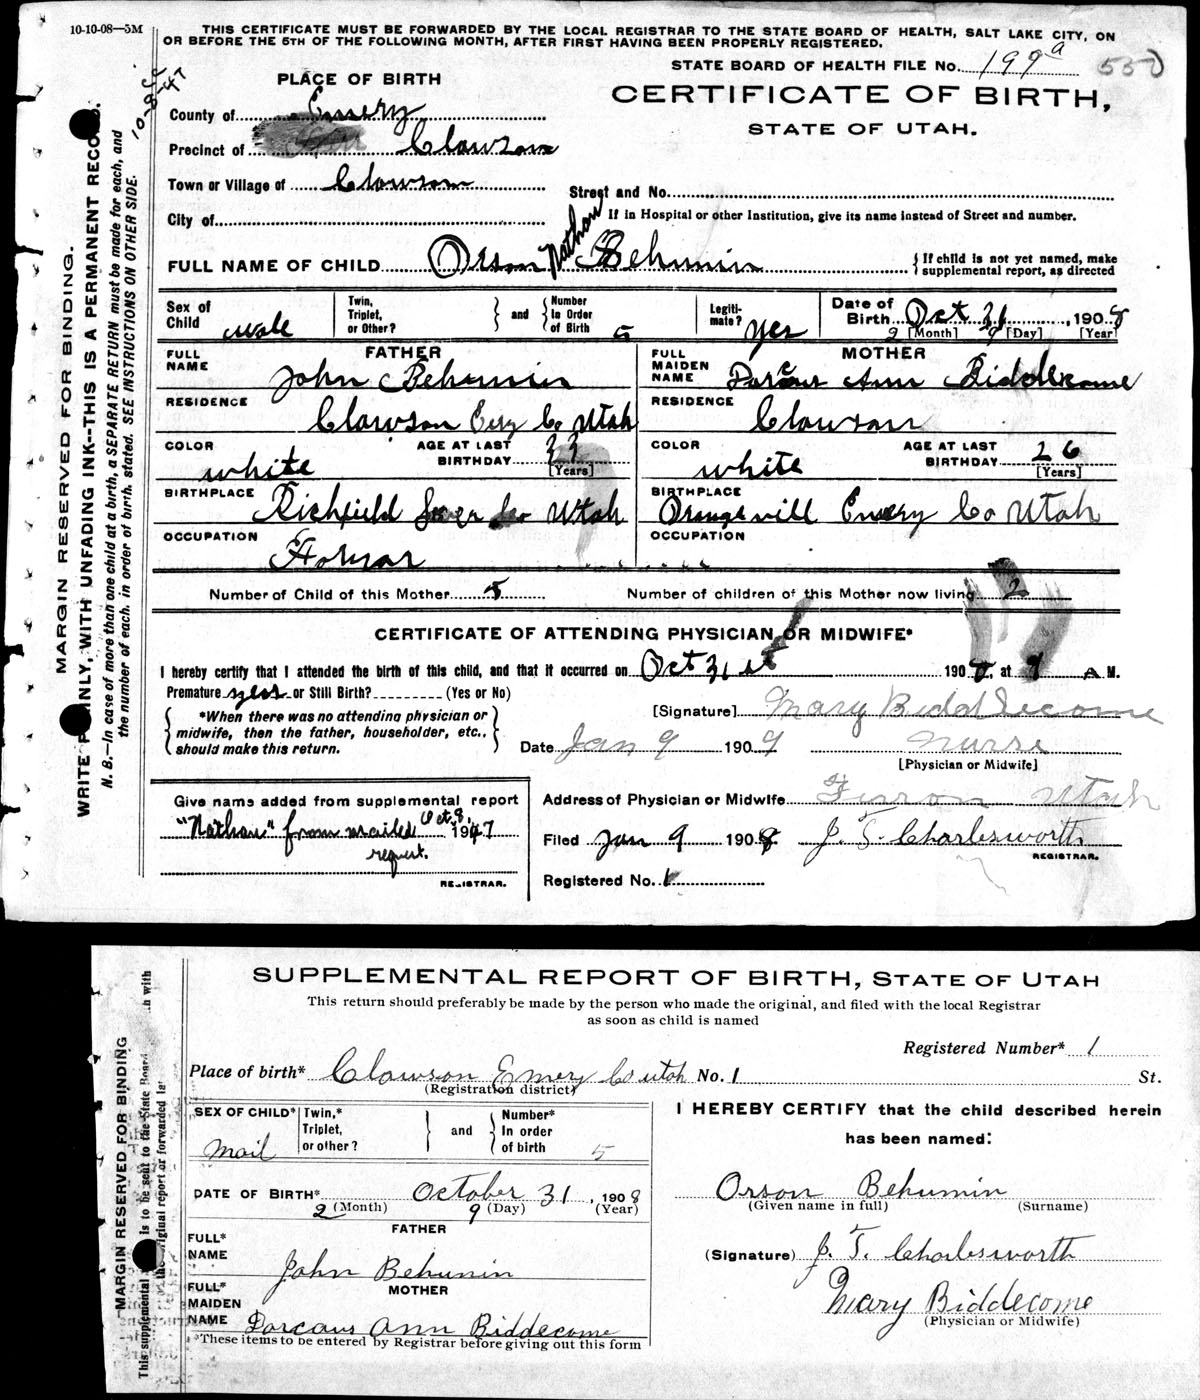 10-10-08—5M
THIS CERTIFICATE MUST BE FORWARDED BY THE LOCAL REGISTRAR TO THE STATE BOARD OF HEALTH, SALT LAKE CITY, ON
OR BEFORE THE 5TH OF THE FOLLOWING MONTH, AFTER FIRST HAVING BEEN PROPERLY REGISTERED.
STATE BOARD OF HEALTH FILE No. 199 a 550
PLACE OF BIRTH
CERTIFICATE OF BIRTH,
STATE OF UTAH.
County of Emery
Precinct of Clawson
Town or Village of Clawson
Street and No.
City of
If in Hospital or other Institution, give its name instead of Street and number.
FULL NAME OF CHILD Orson Nathan Behunin
If child is not yet named, make
supplemental report, as directed
Sex of Child male
Twin, Triplet, or Other?
and
Number In Order of Birth 5
Legiti-mate? yes
Date of Birth Oct 31, 1908
2 [Month] 9 [Day] [Year]
FATHER
FULL NAME John Behunin
RESIDENCE Clawson Emy Co Utah
COLOR white
AGE AT LAST BIRTHDAY 33 [Years]
BIRTHPLACE Richfield Co Utah
OCCUPATION
MOTHER
FULL MAIDEN NAME Ann Biddlecome
RESIDENCE Clawson
COLOR white
AGE AT LAST BIRTHDAY 26 [Years]
BIRTHPLACE Orangevill Emery Co Utah
OCCUPATION
Number of Child of this Mother 5
Number of children of this Mother now living 2
CERTIFICATE OF ATTENDING PHYSICIAN OR MIDWIFE*
I hereby certify that I attended the birth of this child, and that it occurred on Oct 31 st 1908, at 9 A M.
Premature yes or Still Birth? (Yes or No)
*When there was no attending physician or
midwife, then the father, householder, etc.,
should make this return.
[Signature] Mary Biddlecome
Date Jan 9 1909 Nurse
[Physician or Midwife]
Give name added from supplemental report
"Nathan" from mailed Oct. 8, 1947
request.
REGISTRAR.
Address of Physician or Midwife Ferron Utah
Filed Jan 9 190 J. T. Charlesworth
REGISTRAR.
Registered No. 1
MARGIN RESERVED FOR BINDING.
WRITE PLAINLY, WITH UNFADING INK--THIS IS A PERMANENT RECORD.
N. B.—In case of more than one child at a birth, a SEPARATE RETURN must be made for each, and
the number of each, in order of birth, stated. SEE INSTRUCTIONS ON OTHER SIDE.
SUPPLEMENTAL REPORT OF BIRTH, STATE OF UTAH
This return should preferably be made by the person who made the original, and filed with the local Registrar
as soon as child is named
Registered Number* 1
Place of birth* Clawson Emery Co utah No. 1 St.
(Registration district)
SEX OF CHILD* Mail
Twin,* Triplet, or other?
and
Number* In order of birth 5
DATE OF BIRTH* October 31, 1908
2 (Month) 9 (Day) (Year)
FATHER
FULL* NAME John Behunin
MOTHER
FULL* MAIDEN NAME Dorcaus Ann Biddecome
*These items to be entered by Registrar before giving out this form
I HEREBY CERTIFY that the child described herein
has been named:
Orson Behunin
(Given name in full) (Surname)
(Signature) J. T. Charlesworth
Mary Biddecome
(Physician or Midwife)
MARGIN RESERVED FOR BINDING